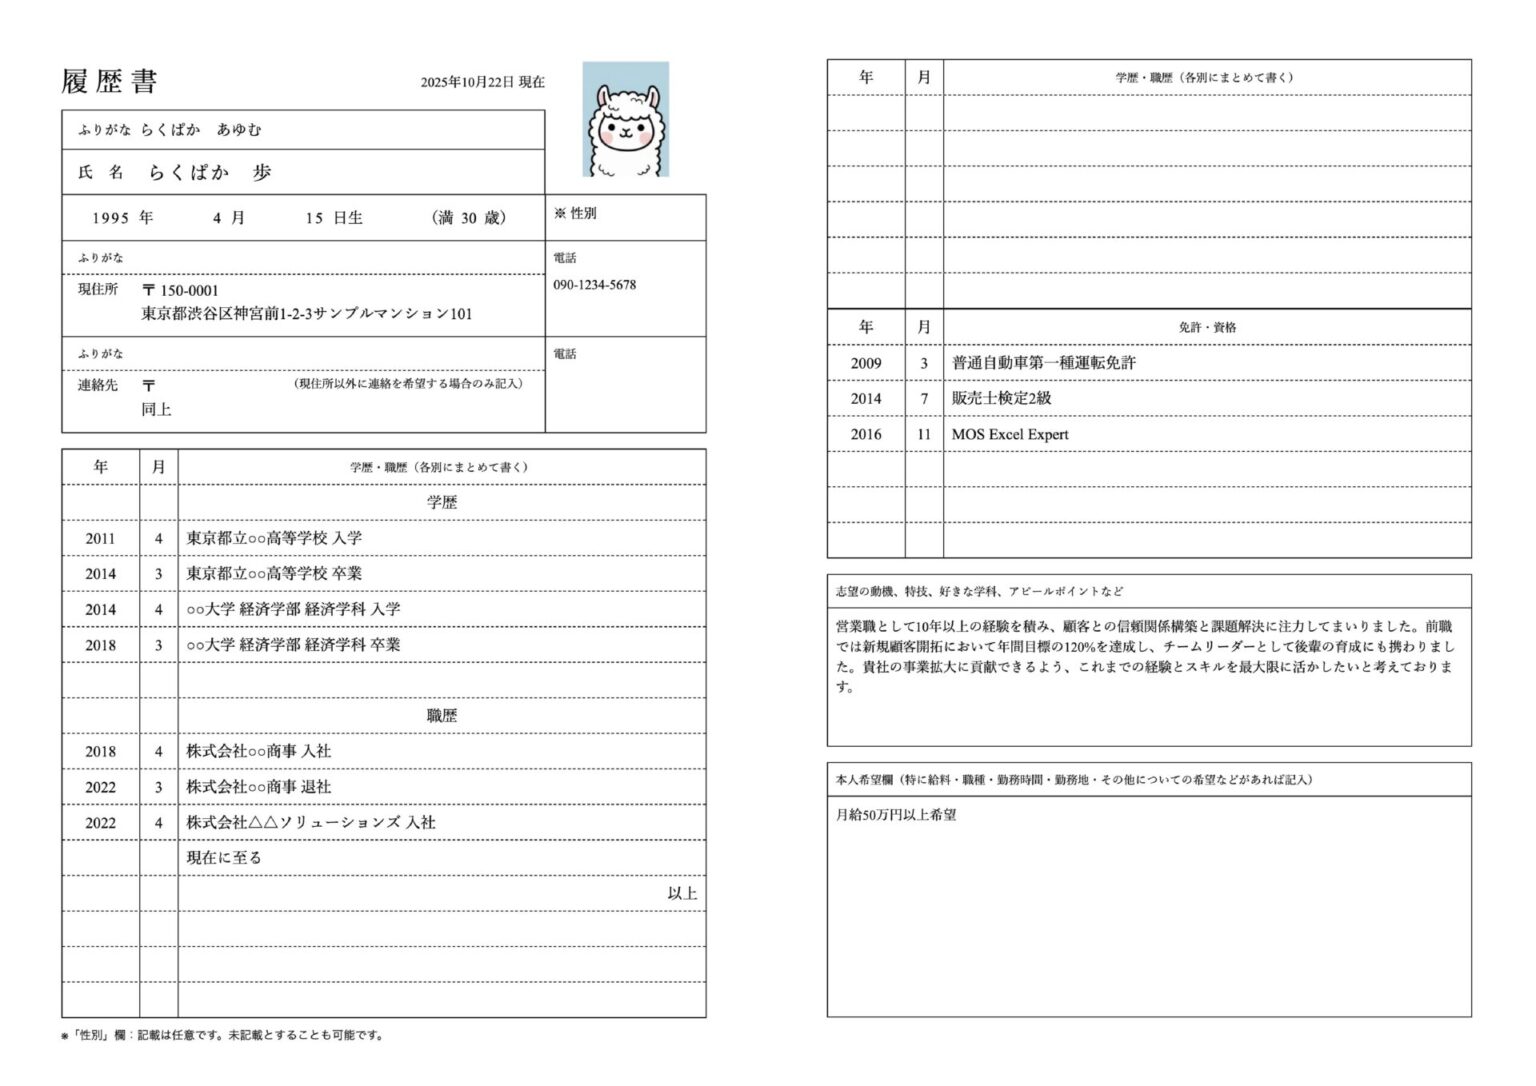 履歴書
2025年10月22日 現在
ふりがな らくぱか あゆむ
氏 名 らくぱか 歩
1995 年 4 月 15 日生 （満 30 歳）
※ 性別
ふりがな
電話
現住所 〒 150-0001
090-1234-5678
東京都渋谷区神宮前1-2-3サンプルマンション101
ふりがな
電話
連絡先 〒 （現住所以外に連絡を希望する場合のみ記入）
同上
年 月 学歴・職歴（各別にまとめて書く）
学歴
2011 4 東京都立○○高等学校 入学
2014 3 東京都立○○高等学校 卒業
2014 4 ○○大学 経済学部 経済学科 入学
2018 3 ○○大学 経済学部 経済学科 卒業
職歴
2018 4 株式会社○○商事 入社
2022 3 株式会社○○商事 退社
2022 4 株式会社△△ソリューションズ 入社
現在に至る
以上
※「性別」欄：記載は任意です。未記載とすることも可能です。
年 月 学歴・職歴（各別にまとめて書く）
年 月 免許・資格
2009 3 普通自動車第一種運転免許
2014 7 販売士検定2級
2016 11 MOS Excel Expert
志望の動機、特技、好きな学科、アピールポイントなど
営業職として10年以上の経験を積み、顧客との信頼関係構築と課題解決に注力してまいりました。前職
では新規顧客開拓において年間目標の120%を達成し、チームリーダーとして後輩の育成にも携わりまし
た。貴社の事業拡大に貢献できるよう、これまでの経験とスキルを最大限に活かしたいと考えておりま
す。
本人希望欄（特に給料・職種・勤務時間・勤務地・その他についての希望などがあれば記入）
月給50万円以上希望